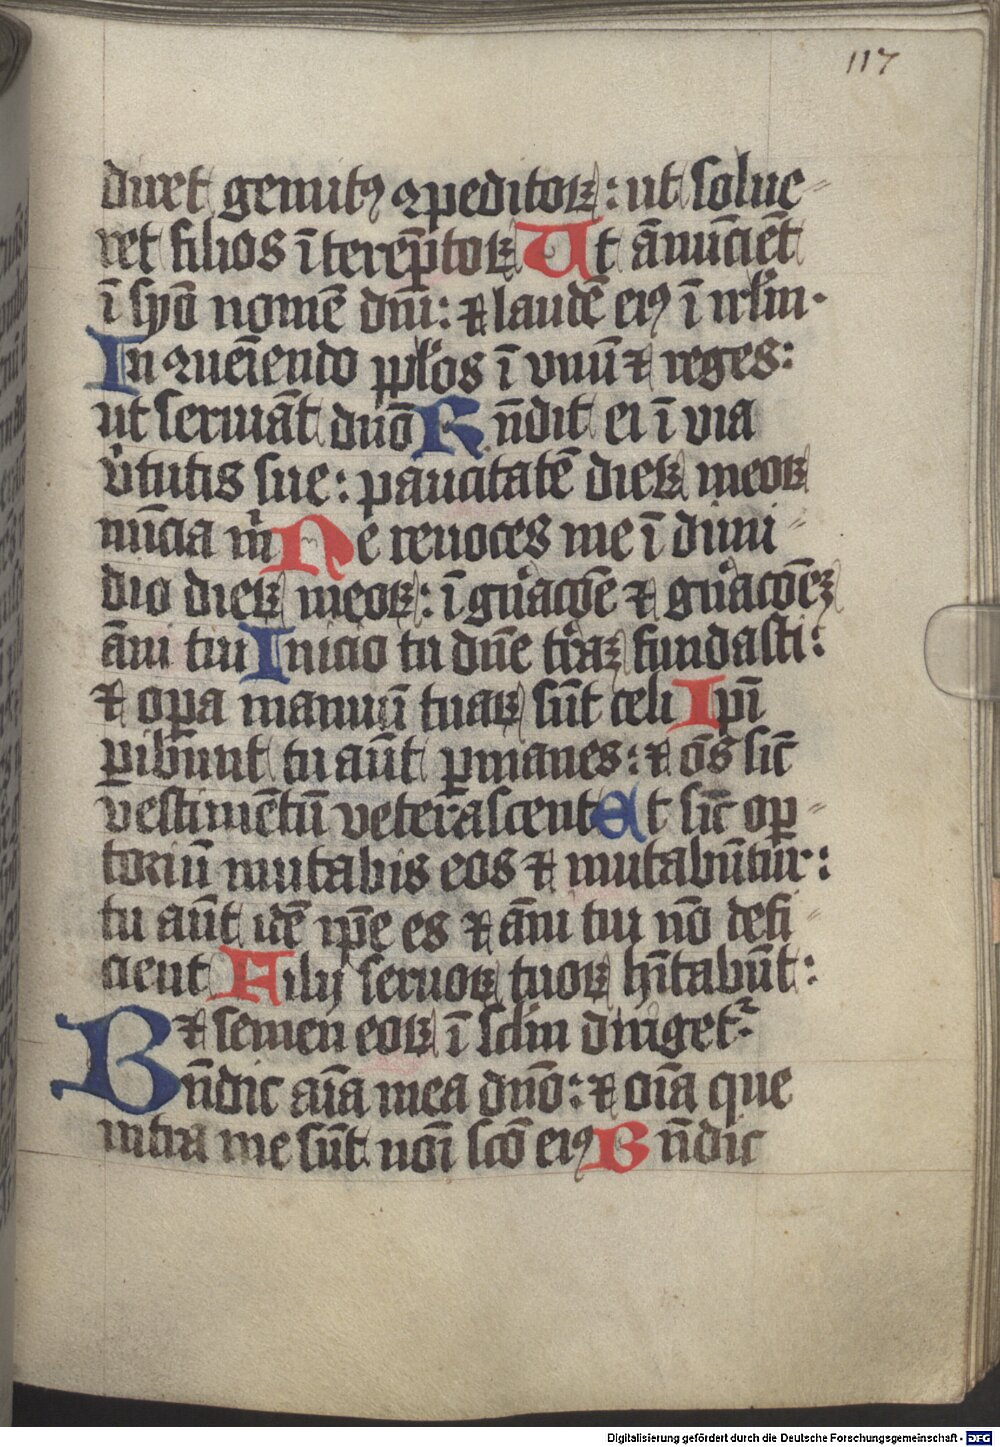 117
diret gemitꝰ ꝯpeditoꝝ: ut solue-
ret filios ī terep̄toꝝ Ut ānūciēt
ī syō nomē dn̄i: ⁊ laudē eiꝰ ī irl̄m.
In ꝯueīendo pp̄los ī vnū ⁊ reges:
ut seruiāt dn̄o Rn̄dit ei ī via
v̓tutis sue: paucitatē dieꝝ meoꝝ
nūcia m̓ Ne reuoces me ī dimi-
dio dieꝝ meoꝝ: ī gn̓acōe ⁊ gn̓acōeꝫ
āni tui Inicio tu dn̄e t̓raꝫ fundasti:
⁊ oꝑa manuū tuaꝝ sūt celi Ipī
ꝑibūnt tu aūt ꝑmanes: ⁊ oēs sic̄
vestimētū veterāscent Et sic̄ oꝑ-
toriū mutabis eos ⁊ mutabūtur:
tu aūt idē ip̄e es ⁊ āni tui nō defi-
cient Filij seruoꝝ tuoꝝ hītabūt:
⁊ semen eoꝝ ī sc̄lm diriget²
Bn̄dic aīa mea dn̄o: ⁊ oīa que
intra me sūt noī scō eiꝰ Bn̄dic
Digitalisierung gefördert durch die Deutsche Forschungsgemeinschaft - DFG